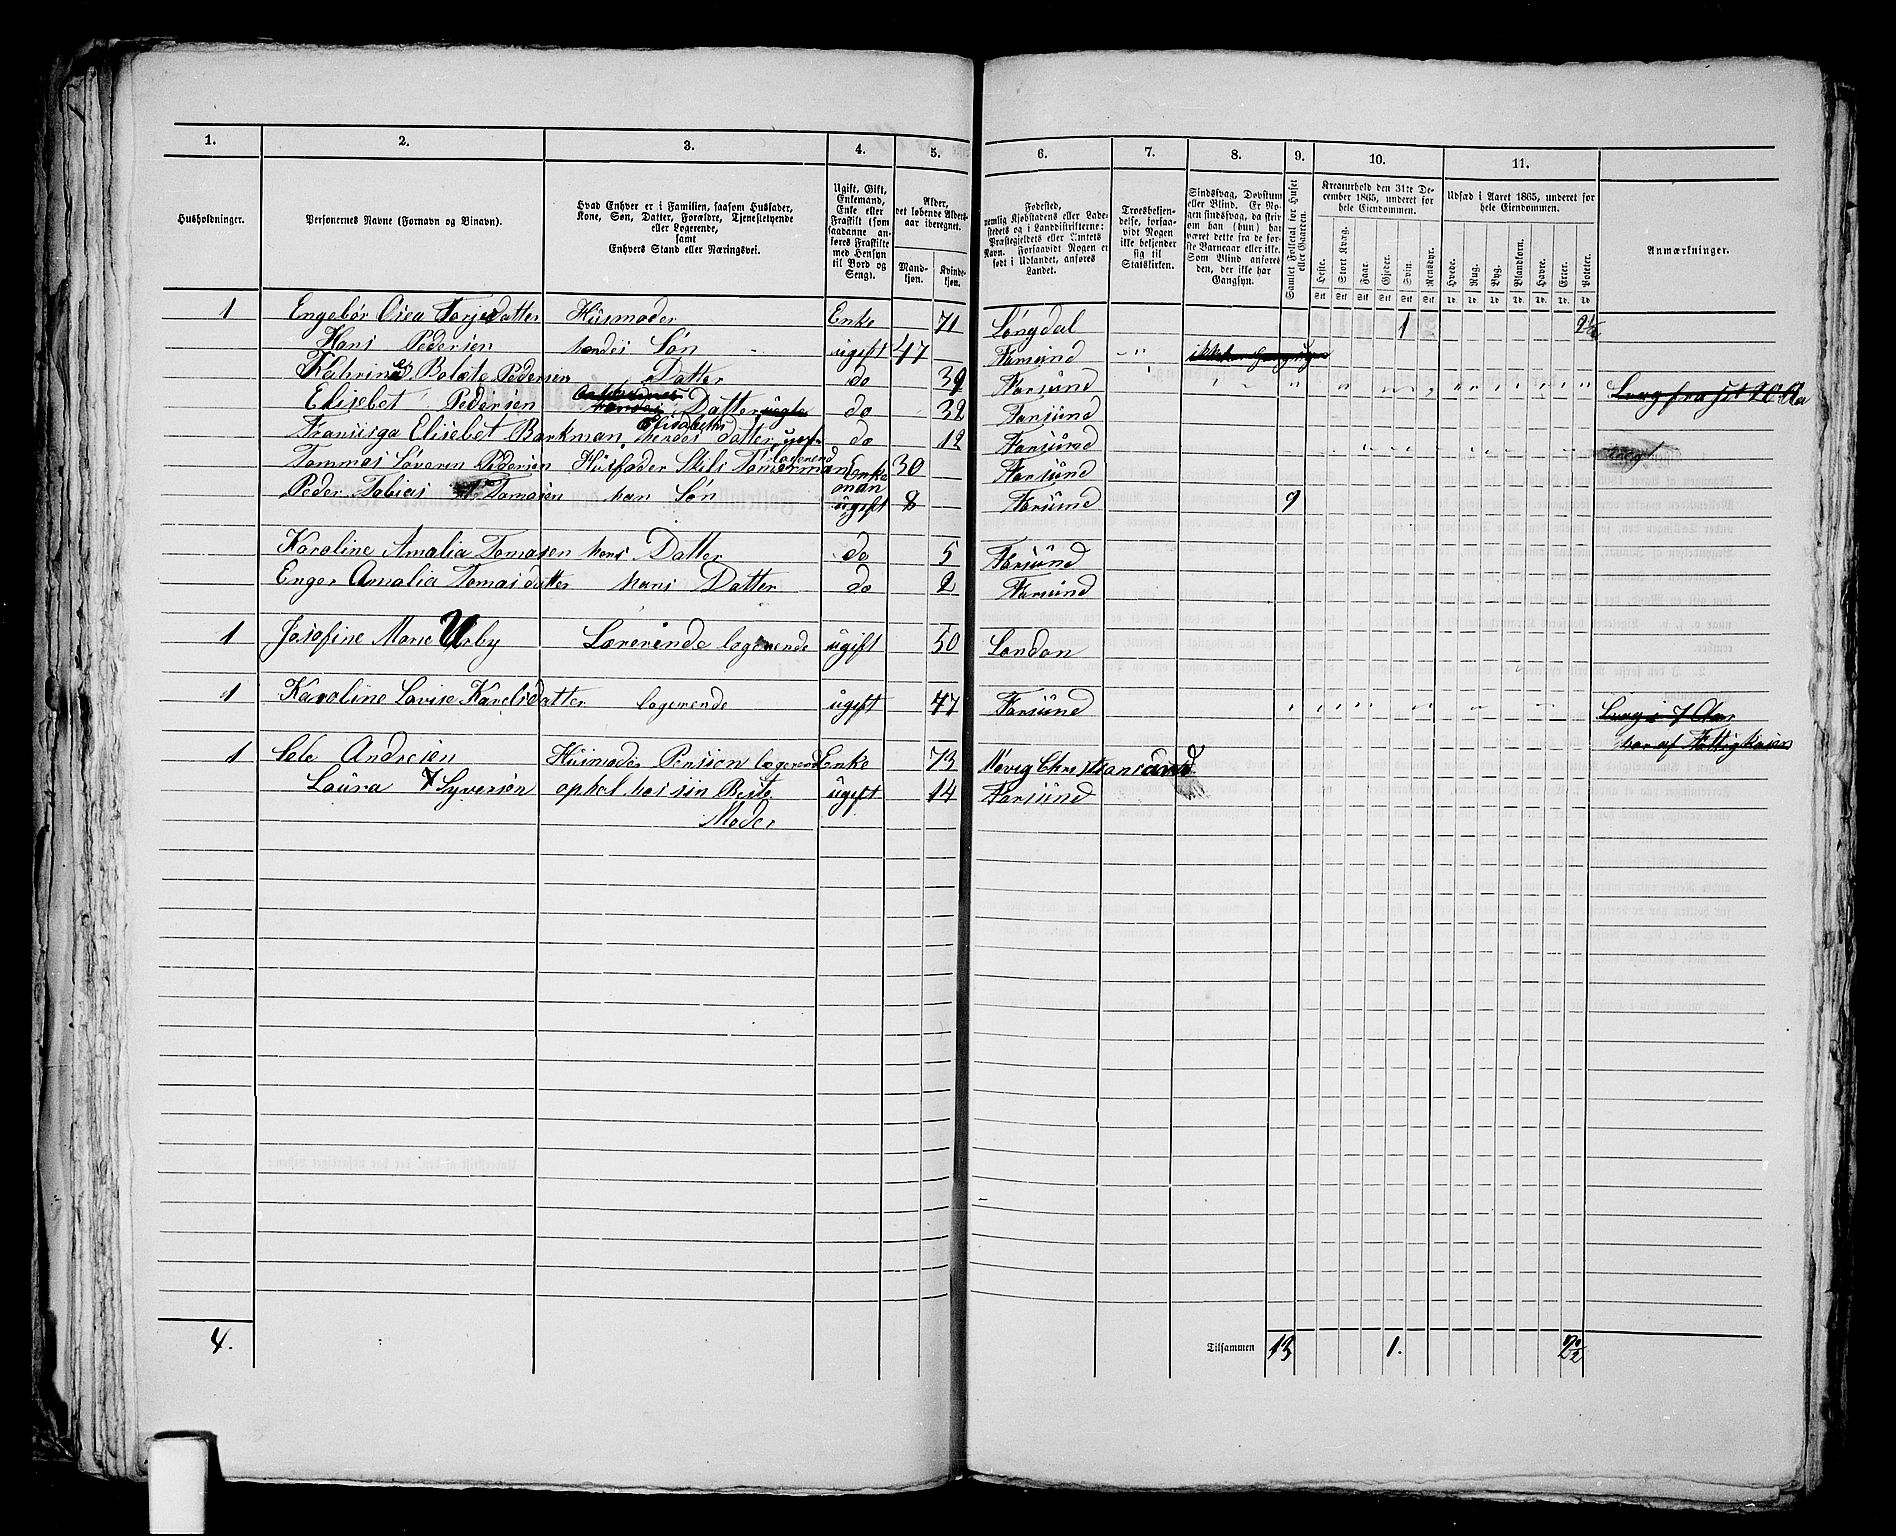 1. 2. 3. 4. 5. 6. 7. 8. 9. 10. 11.
Husholdninger.
Personernes Navne (Fornavn og Binavn).
Hvad Enhver er i Familien, saasom Husfader,
Kone, Søn, Datter, Forældre, Tjenestetyende
eller Logerende,
samt
Enhvers Stand eller Næringsvei.
Ugift, Gift,
Enkemand,
Enke eller
Fraskilt (som
saadanne an-
føres Fraskilte
med Hensyn
til Bord og
Seng).
Alder,
det løbende Alders-
aar iberegnet.
Mand-
kjøn.
Kvinde-
kjøn.
Fødested,
nemlig Kjøbstadens eller Lade-
stedets og i Landdistrikterne:
Præstegjeldets eller Amtets
Navn. Forsaavidt Nogen er
født i Udlandet, anføres
Landet.
Troesbekjen-
delse, forsaa-
vidt Nogen
ikke bekjender
sig til
Statskirken.
Sindssvag, Døvstum
eller Blind. Er No-
gen sindssvag, da skriv
om han (hun) har
været dette fra de før-
ste Barneaar eller ikke.
Som Blind anføres
den, der ikke har
Gangsyn.
Samlet Folketal for Huset
eller Gaarden.
Kreaturhold den 31te De-
cember 1865, underet for
hele Eiendommen.
Heste. Stort Kvæg. Faar. Gjeder. Svin. Rensdyr.
Stk Stk Stk Stk Stk Stk
Udsæd i Aaret 1865, underet for
hele Eiendommen.
Hvede. Rug. Byg. Blandkorn. Havre. Erter. Poteter.
Td. Td. Td. Td. Td. Td. Td.
Anmærkninger.
1 Engebør Osea Torjesdatter Husmoder Enke 71 Løngdal 1 2½
Hans Pedersen hendes Søn ugift 47 Farsund
Katrine Bolete Pedersen Datter do 39 Farsund
Elisebet Pedersen Datter do 32 Farsund
Elisabeths
Fransisga Elisebet Barkman hendes datter do 12 Farsund
logerend
Tommas Søveren Pedersen Husfader Skibs Tømerman Enke 30 Farsund
man
Peder Tobias Tomasen han Søn ugift 8 Farsund 9
Karoline Amalia Tomasen hans Datter do 5 Farsund
Enger Amalia Tomasdatter hans Datter do 2 Farsund
1 Josefine Marie Urby Lærerende logerende ugift 50 London
1 Karoline Lovise Karelsdatter logerende ugift 47 Farsund
1 Sele Andresen Husmoder Pensien logerend Enke 73 Møvig Christiansand
Laura Syversen ophol hos sin Beste ugift 14 Farsund
Moder
4. Tilsammen 13 1. 2½